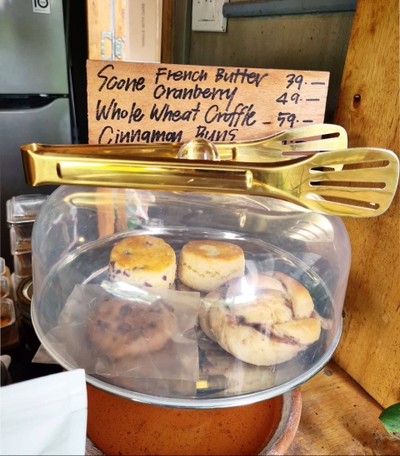 LG
Scone French Butter 39.-
Cranberry 49.-
Whole Wheat Croffle - 59.-
Cinnamon Buns